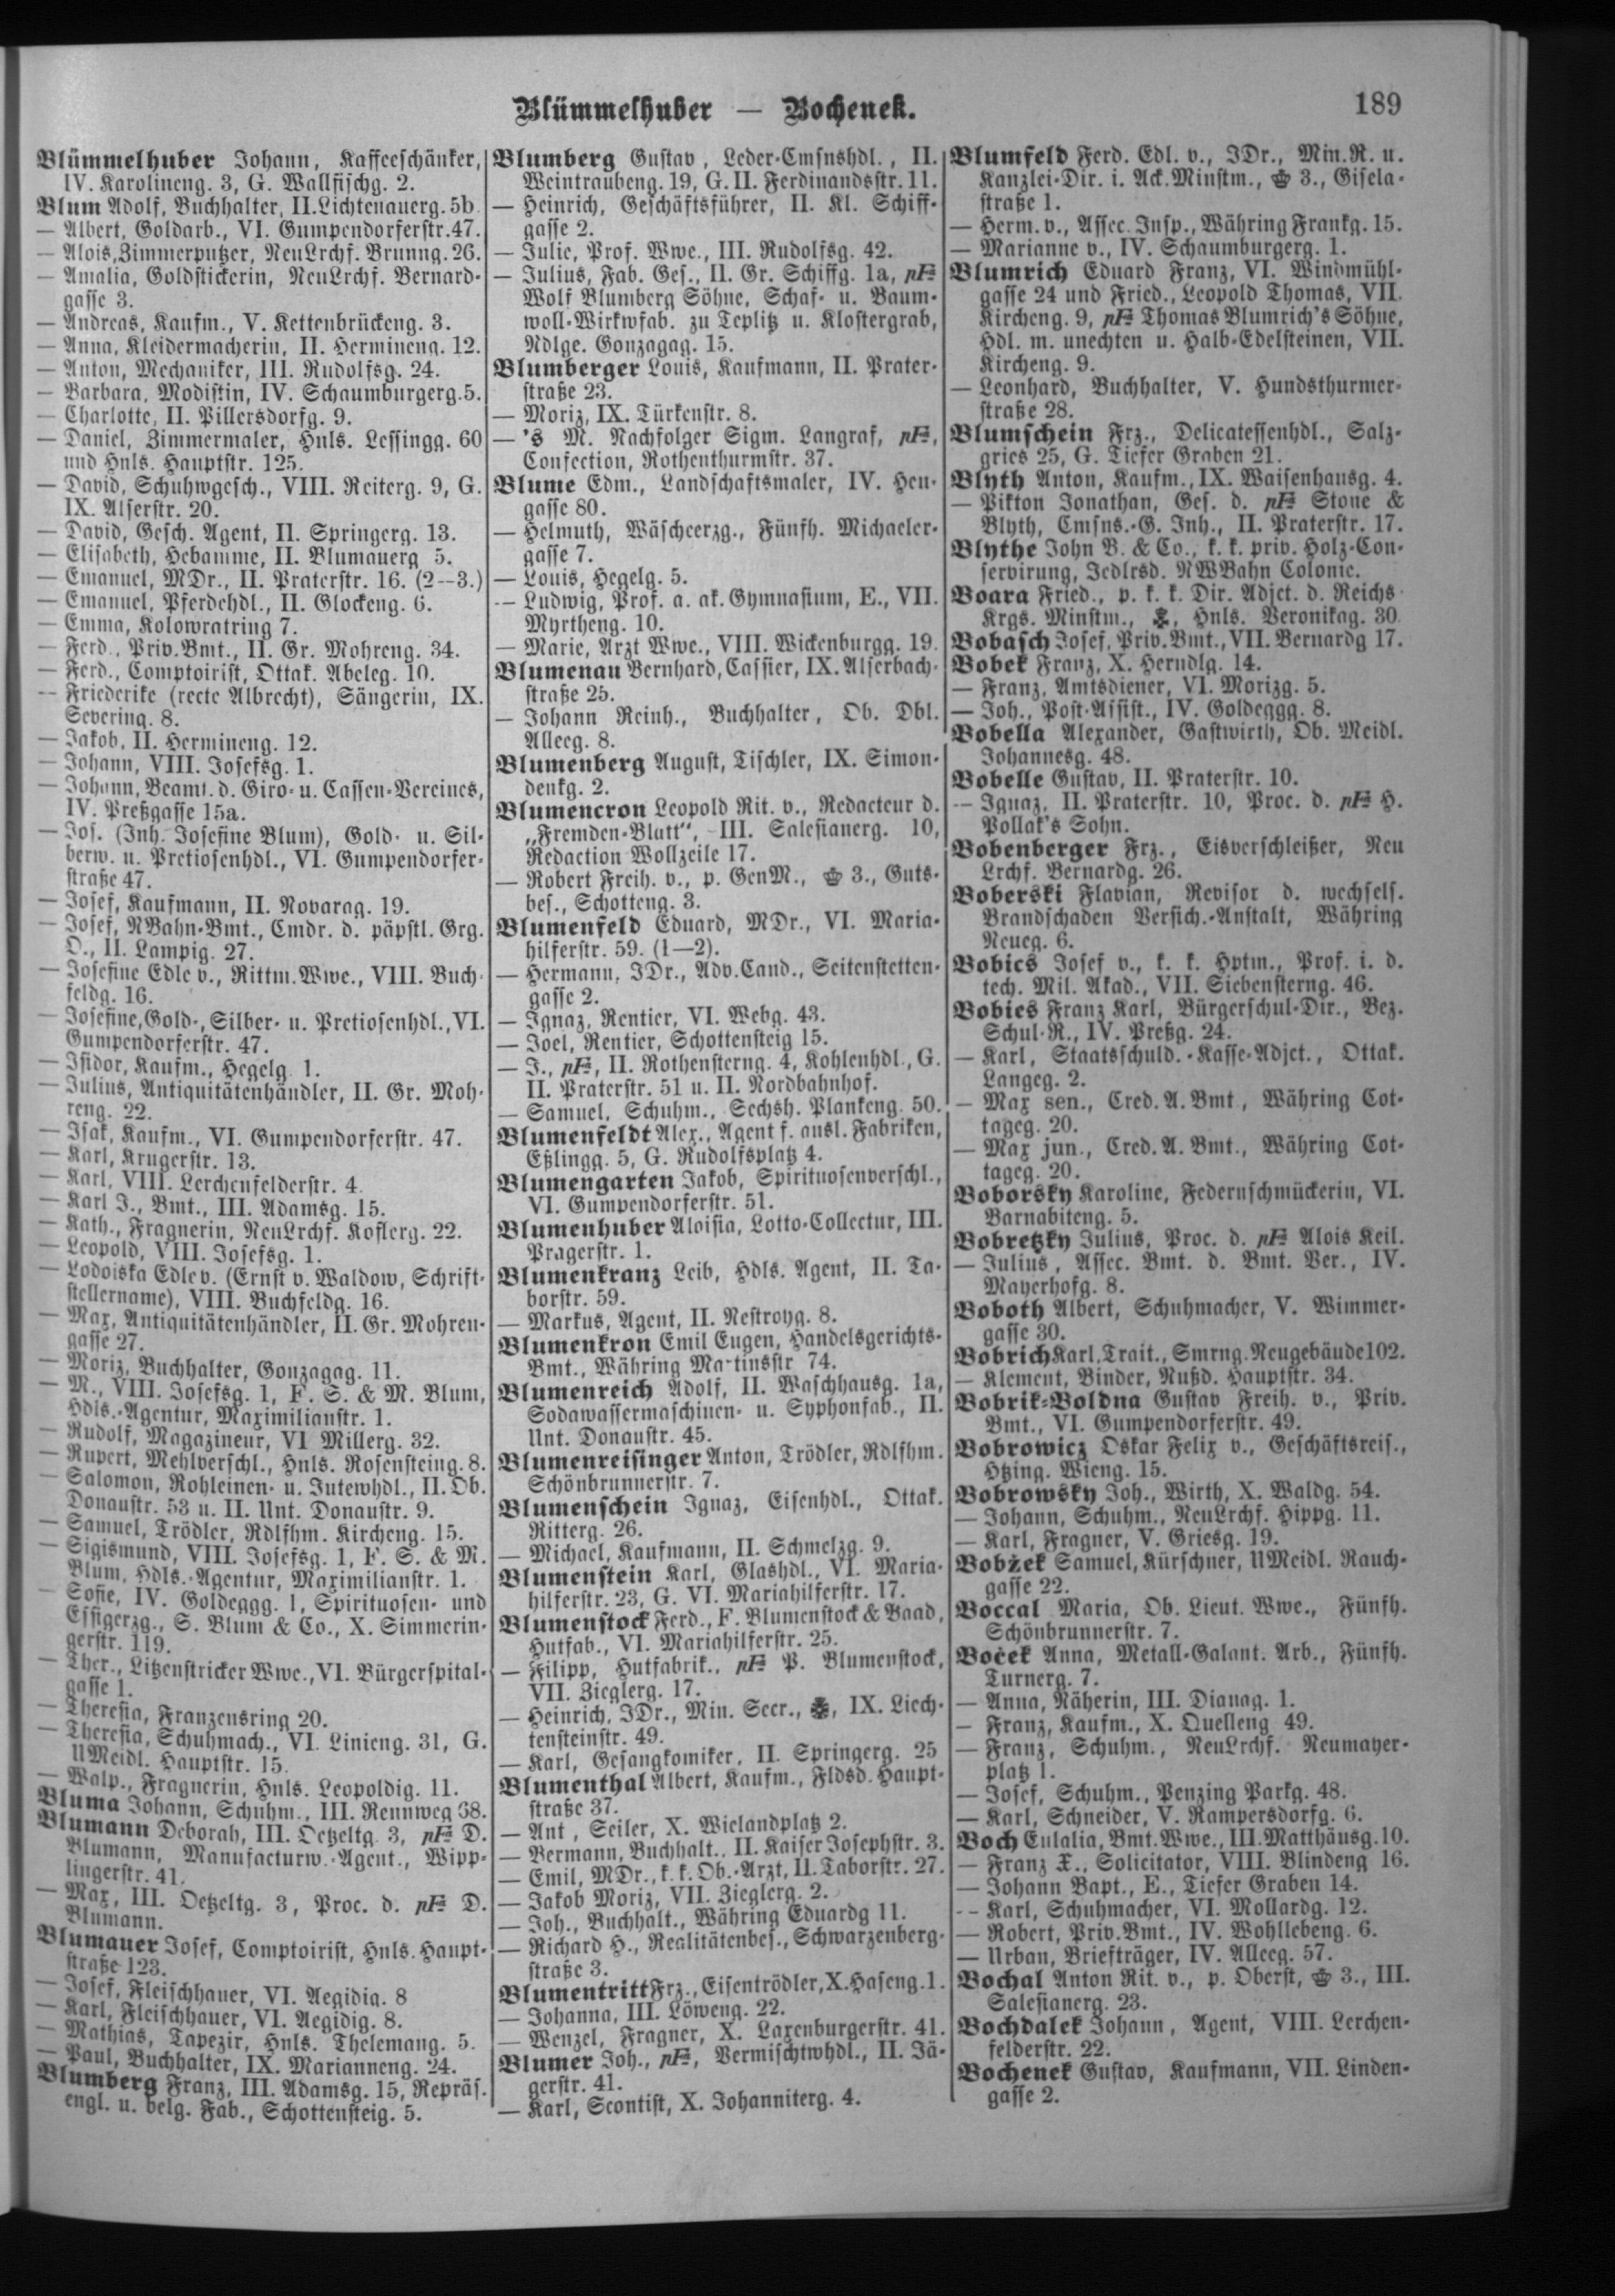 Blümmelhuber — Bochenek.
189
Blümmelhuber Johann, Kaffeeschänker,
IV. Karolineng. 3, G. Wallfischg. 2.
Blum Adolf, Buchhalter, II. Lichtenauerg. 5b
— Albert, Goldarb., VI. Gumpendorferstr. 47.
— Alois, Zimmerputzer, NeuLrchf. Brunng. 26.
— Amalia, Goldstickerin, NeuLrchf. Bernard-
gasse 3.
— Andreas, Kaufm., V. Kettenbrückeng. 3.
— Anna, Kleidermacherin, II. Hermineng. 12.
— Anton, Mechaniker, III. Rudolfsg. 24.
— Barbara, Modistin, IV. Schaumburgerg. 5.
— Charlotte, II. Pillersdorfg. 9.
— Daniel, Zimmermaler, Hnls. Lessingg. 60
und Hnls. Hauptstr. 125.
— David, Schuhwgesch., VIII. Reiterg. 9, G.
IX. Alserstr. 20.
— David, Gesch. Agent, II. Springerg. 13.
— Elisabeth, Hebamme, II. Blumauerg 5.
— Emanuel, MDr., II. Praterstr. 16. (2—3.)
— Emanuel, Pferdehdl., II. Glockeng. 6.
— Emma, Kolowratring 7.
— Ferd., Priv.Bmt., II. Gr. Mohreng. 34.
— Ferd., Comptoirist, Ottak. Abeleg. 10.
— Friederike (recte Albrecht), Sängerin, IX.
Severing. 8.
— Jakob, II. Hermineng. 12.
— Johann, VIII. Josefsg. 1.
— Johann, Beamt. d. Giro- u. Cassen-Vereines,
IV. Preßgasse 15a.
— Jos. (Inh. Josefine Blum), Gold- u. Sil-
berw. u. Pretiosenhdl., VI. Gumpendorfer-
straße 47.
— Josef, Kaufmann, II. Novarag. 19.
— Josef, NBahn-Bmt., Cmdr. d. päpstl. Grg.
O., II. Lampig. 27.
— Josefine Edle v., Rittm. Wwe., VIII. Buch-
feldg. 16.
— Josefine, Gold-, Silber- u. Pretiosenhdl., VI.
Gumpendorferstr. 47.
— Isidor, Kaufm., Hegelg 1.
— Julius, Antiquitätenhändler, II. Gr. Moh-
reng. 22.
— Isak, Kaufm., VI. Gumpendorferstr. 47.
— Karl, Krugerstr. 13.
— Karl, VIII. Lerchenfelderstr. 4
— Karl J., Bmt., III. Adamsg. 15.
— Kath., Fragnerin, NeuLrchf. Koflerg. 22.
— Leopold, VIII. Josefsg. 1.
— Lodoiska Edle v. (Ernst v. Waldow, Schrift-
stellername), VIII. Buchfeldg. 16.
— Max, Antiquitätenhändler, II. Gr. Mohren-
gasse 27.
— Moriz, Buchhalter, Gonzagag. 11.
— M., VIII. Josefsg. 1, F. S. & M. Blum,
Hdls.-Agentur, Maximilianstr. 1.
— Rudolf, Magazineur, VI Millerg. 32.
— Rupert, Mehlverschl., Hnls. Rosensteing. 8.
— Salomon, Rohleinen- u. Jutewhdl., II. Ob.
Donaustr. 53 u. II. Unt. Donaustr. 9.
— Samuel, Trödler, Rdlfhm. Kircheng. 15.
— Sigismund, VIII. Josefsg. 1, F. S. & M.
Blum, Hdls.-Agentur, Maximilianstr. 1.
— Sofie, IV. Goldeggg. 1, Spirituosen- und
Essigerzg., S. Blum & Co., X. Simmerin-
gerstr. 119.
— Ther., Litzenstricker Wwe., VI. Bürgerspital-
gasse 1.
— Theresia, Franzensring 20.
— Theresia, Schuhmach., VI. Linieng. 31, G.
UMeidl. Hauptstr. 15
— Walp., Fragnerin, Hnls. Leopoldig. 11.
Bluma Johann, Schuhm., III. Rennweg 38.
Blumann Deborah, III. Oetzeltg. 3, pFa D.
Blumann, Manufacturw.-Agent., Wipp-
lingerstr. 41.
— Max, III. Oetzeltg. 3, Proc. d. pFa D.
Blumann.
Blumauer Josef, Comptoirist, Hnls. Haupt-
straße 123.
— Josef, Fleischhauer, VI. Aegidig. 8
— Karl, Fleischhauer, VI. Aegidig. 8.
— Mathias, Tapezir, Hnls. Thelemang. 5.
— Paul, Buchhalter, IX. Marianneng. 24.
Blumberg Franz, III. Adamsg. 15, Repräs.
engl. u. belg. Fab., Schottensteig. 5.
Blumberg Gustav, Leder-Cmsnshdl., II.
Weintraubeng. 19, G. II. Ferdinandsstr. 11.
— Heinrich, Geschäftsführer, II. Kl. Schiff-
gasse 2.
— Julie, Prof. Wwe., III. Rudolfsg. 42.
— Julius, Fab. Ges., II. Gr. Schiffg. 1a, pFa
Wolf Blumberg Söhne, Schaf- u. Baum-
woll-Wirkwfab. zu Teplitz u. Klostergrab,
Ndlge. Gonzagag. 15.
Blumberger Louis, Kaufmann, II. Prater-
straße 23.
— Moriz, IX. Türkenstr. 8.
— 's M. Nachfolger Sigm. Langraf, pFa,
Confection, Rothenthurmstr. 37.
Blume Edm., Landschaftsmaler, IV. Heu-
gasse 80.
— Helmuth, Wäscheerzg., Fünfh. Michaeler-
gasse 7.
— Louis, Hegelg. 5.
— Ludwig, Prof. a. ak. Gymnasium, E., VII.
Myrtheng. 10.
— Marie, Arzt Wwe., VIII. Wickenburgg. 19.
Blumenau Bernhard, Cassier, IX. Alserbach-
straße 25.
— Johann Reinh., Buchhalter, Ob. Dbl.
Alleeg. 8.
Blumenberg August, Tischler, IX. Simon-
denkg. 2.
Blumencron Leopold Rit. v., Redacteur d.
„Fremden-Blatt“, III. Salesianerg. 10,
Redaction Wollzeile 17.
— Robert Freih. v., p. GenM., 3., Guts-
bes., Schotteng. 3.
Blumenfeld Eduard, MDr., VI. Maria-
hilferstr. 59. (1—2).
— Hermann, JDr., Adv.Cand., Seitenstetten-
gasse 2.
— Ignaz, Rentier, VI. Webg. 43.
— Joel, Rentier, Schottensteig 15.
— J., pFa, II. Rothensterng. 4, Kohlenhdl., G.
II. Praterstr. 51 u. II. Nordbahnhof.
— Samuel, Schuhm., Sechsh. Plankeng. 50.
Blumenfeldt Alex., Agent f. ausl. Fabriken,
Eßlingg. 5, G. Rudolfsplatz 4.
Blumengarten Jakob, Spirituosenverschl.,
VI. Gumpendorferstr. 51.
Blumenhuber Aloisia, Lotto-Collectur, III.
Pragerstr. 1.
Blumenkranz Leib, Hdls. Agent, II. Ta-
borstr. 59.
— Markus, Agent, II. Nestroyg. 8.
Blumenkron Emil Eugen, Handelsgerichts-
Bmt., Währing Martinsstr 74.
Blumenreich Adolf, II. Waschhausg. 1a,
Sodawassermaschinen- u. Syphonfab., II.
Unt. Donaustr. 45.
Blumenreisinger Anton, Trödler, Rdlfhm.
Schönbrunnerstr. 7.
Blumenschein Ignaz, Eisenhdl., Ottak.
Ritterg. 26.
— Michael, Kaufmann, II. Schmelzg. 9.
Blumenstein Karl, Glashdl., VI. Maria-
hilferstr. 23, G. VI. Mariahilferstr. 17.
Blumenstock Ferd., F. Blumenstock & Baad,
Hutfab., VI. Mariahilferstr. 25.
— Filipp, Hutfabrik., pFa P. Blumenstock,
VII. Zieglerg. 17.
— Heinrich, JDr., Min. Secr., , IX. Liech-
tensteinstr. 49.
— Karl, Gesangkomiker, II. Springerg. 25
Blumenthal Albert, Kaufm., Fldsd. Haupt-
straße 37.
— Ant, Seiler, X. Wielandplatz 2.
— Bermann, Buchhalt.. II. Kaiser Josephstr. 3.
— Emil, MDr., k. k. Ob.-Arzt, II. Taborstr. 27.
— Jakob Moriz, VII. Zieglerg. 2.
— Joh., Buchhalt., Währing Eduardg 11.
— Richard H., Realitätenbes., Schwarzenberg-
straße 3.
Blumentritt Frz., Eisentrödler, X. Haseng. 1.
— Johanna, III. Löweng. 22.
— Wenzel, Fragner, X. Laxenburgerstr. 41.
Blumer Joh., pFa, Vermischtwhdl., II. Jä-
gerstr. 41.
— Karl, Scontist, X. Johanniterg. 4.
Blumfeld Ferd. Edl. v., JDr., Min. R. u.
Kanzlei-Dir. i. Ack.Minstm., 3., Gisela-
straße 1.
— Herm. v., Assec. Insp., Währing Frankg. 15.
— Marianne v., IV. Schaumburgerg. 1.
Blumrich Eduard Franz, VI. Windmühl-
gasse 24 und Fried., Leopold Thomas, VII.
Kircheng. 9, pFa Thomas Blumrich's Söhne,
Hdl. m. unechten u. Halb-Edelsteinen, VII.
Kircheng. 9.
— Leonhard, Buchhalter, V. Hundsthurmer-
straße 28.
Blumschein Frz., Delicatessenhdl., Salz-
gries 25, G. Tiefer Graben 21.
Blyth Anton, Kaufm., IX. Waisenhausg. 4.
— Pikton Jonathan, Ges. d. pFa Stone &
Blyth, Cmsns.-G. Inh., II. Praterstr. 17.
Blythe John B. & Co., k. k. priv. Holz-Con-
servirung, Jedlrsd. NWBahn Colonie.
Boara Fried., p. k. k. Dir. Adjct. d. Reichs-
Krgs. Minstm., , Hnls. Veronikag. 30
Bobasch Josef, Priv. Bmt., VII. Bernardg 17.
Bobek Franz, X. Herndlg. 14.
— Franz, Amtsdiener, VI. Morizg. 5.
— Joh., Post-Assist., IV. Goldeggg. 8.
Bobella Alexander, Gastwirth, Ob. Meidl.
Johannesg. 48.
Bobelle Gustav, II. Praterstr. 10.
— Ignaz, II. Praterstr. 10, Proc. d. pFa H.
Pollak's Sohn.
Bobenberger Frz., Eisverschleißer, Neu
Lrchf. Bernardg. 26.
Boberski Flavian, Revisor d. wechsels.
Brandschaden Versich.-Anstalt, Währing
Neueg. 6.
Bobics Josef v., k. k. Hptm., Prof. i. d.
tech. Mil. Akad., VII. Siebensterng. 46.
Bobies Franz Karl, Bürgerschul-Dir., Bez.
Schul-R., IV. Preßg. 24.
— Karl, Staatsschuld.-Kasse-Adjct., Ottak.
Langeg. 2.
— Max sen., Cred. A. Bmt, Währing Cot-
tageg. 20.
— Max jun., Cred. A. Bmt., Währing Cot-
tageg. 20.
Boborsky Karoline, Federnschmückerin, VI.
Barnabiteng. 5.
Bobretzky Julius, Proc. d. pFa Alois Keil.
— Julius, Assec. Bmt. d. Bmt. Ver., IV.
Mayerhofg. 8.
Boboth Albert, Schuhmacher, V. Wimmer-
gasse 30.
Bobrich Karl, Trait., Smrng. Neugebäude 102.
— Klement, Binder, Nußd. Hauptstr. 34.
Bobrik-Boldna Gustav Freih. v., Priv.
Bmt., VI. Gumpendorferstr. 49.
Bobrowicz Oskar Felix v., Geschäftsreis.,
Htzing. Wieng. 15.
Bobrowsky Joh., Wirth, X. Waldg. 54.
— Johann, Schuhm., NeuLrchf. Hippg. 11.
— Karl, Fragner, V. Griesg. 19.
Bobžek Samuel, Kürschner, UMeidl. Rauch-
gasse 22.
Boccal Maria, Ob. Lieut. Wwe., Fünfh.
Schönbrunnerstr. 7.
Boček Anna, Metall-Galant. Arb., Fünfh.
Turnerg. 7.
— Anna, Näherin, III. Dianag. 1.
— Franz, Kaufm., X. Quelleng 49.
— Franz, Schuhm., NeuLrchf. Neumayer-
platz 1.
— Josef, Schuhm., Penzing Parkg. 48.
— Karl, Schneider, V. Rampersdorfg. 6.
Boch Eulalia, Bmt. Wwe., III. Matthäusg. 10.
— Franz X., Solicitator, VIII. Blindeng 16.
— Johann Bapt., E., Tiefer Graben 14.
— Karl, Schuhmacher, VI. Mollardg. 12.
— Robert, Priv.Bmt., IV. Wohllebeng. 6.
— Urban, Briefträger, IV. Alleeg. 57.
Bochal Anton Rit. v., p. Oberst, 3., III.
Salesianerg. 23.
Bochdalek Johann, Agent, VIII. Lerchen-
felderstr. 22.
Bochenek Gustav, Kaufmann, VII. Linden-
gasse 2.